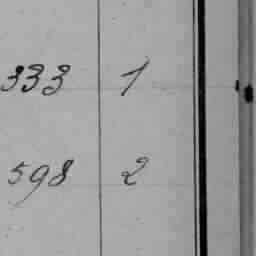 333 1
598 2